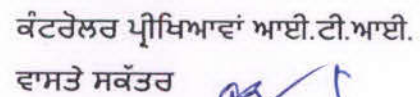 ਕੰਟਰੋਲਰ ਪ੍ਰੀਖਿਆਵਾਂ ਆਈ.ਟੀ.ਆਈ.
ਵਾਸਤੇ ਸਕੱਤਰ